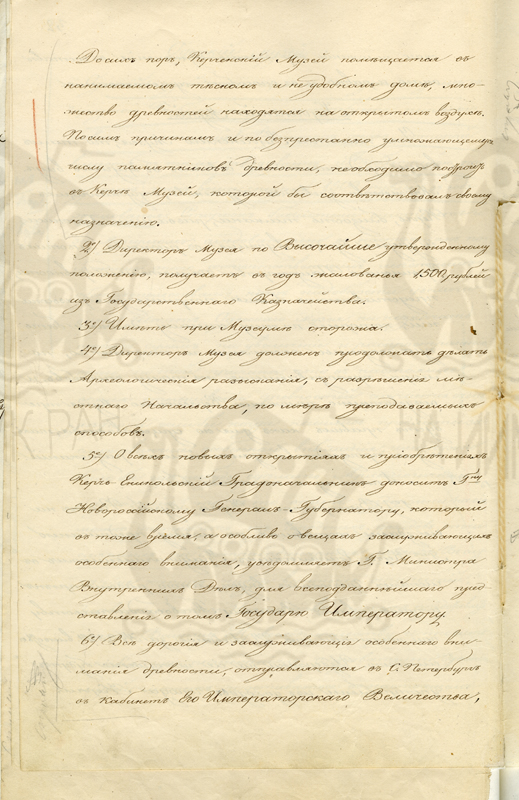 До сихъ поръ, Керченскій Музей помѣщается въ
нанимаемомъ тѣсномъ и не удобномъ домѣ, мно-
жество древностей находятся на открытомъ воздухѣ.
По симъ причинамъ и по безпрестанно умножающемуся
числу памятниковъ древности, необходимо построить
въ Керчѣ Музей, которой бы соотвѣтствовалъ своему
назначенію.
2е) Директоръ Музея по Высочайше утвержденному
положенію, получаетъ въ годъ жалованья 1500 рублей
изъ Государственнаго Казначейства.
3е) Имѣть при Музеумѣ сторожа.
4е) Директоръ Музея долженъ продолжать дѣлать
Археологическія разысканія, съ разрѣшенія мѣ-
стнаго Начальства, по мѣрѣ преподаваемыхъ
способовъ.
5е) О всѣхъ новыхъ открытіяхъ и пріобрѣтеніяхъ
Керчь Еникольскій Градоначальникъ доноситъ Гну
Новороссійскому Генералъ-Губернатору, который
въ тоже время, а особливо о вещахъ заслуживающихъ
особеннаго вниманія, увѣдомляетъ Г. Министра
Внутреннихъ Дѣлъ, для всеподданнѣйшаго пред-
ставленія о томъ Государю Императору.
6е) Всѣ дорогія и заслуживающія особеннаго вни-
манія древности, отправляются въ С. Петербургъ
въ Кабинетъ Его Императорскаго Величества,
КР
НА